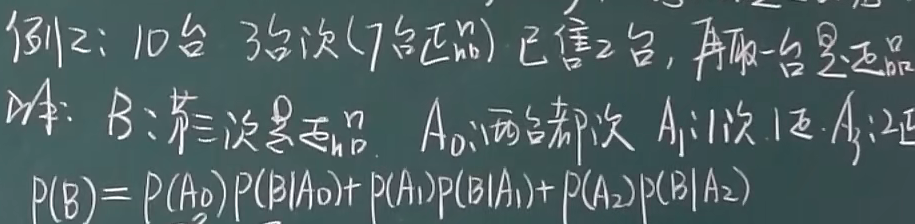 例2: 10台 3台次(7台正品) 已售2台, 再取一台是正品
解: B:第三次是正品. A₀:两台都次 A₁:1次1正. A₂:2正
P(B)= P(A₀)P(B|A₀)+P(A₁)P(B|A₁)+P(A₂)P(B|A₂)